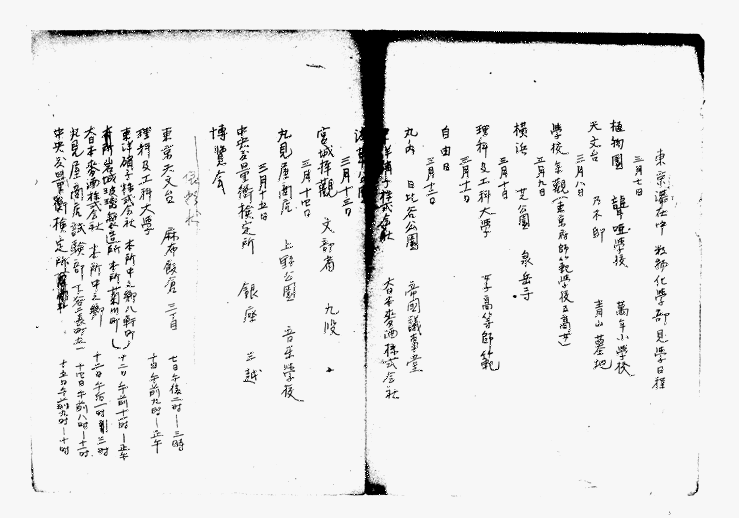 東京滞在中 数物化学部見学日程
三月七日
植物園 聾唖学校 萬年小学校
天文台 乃木邸 青山墓地
三月八日
学校参観(東京府師範学校及高女)
三月九日
横浜 芝公園 泉岳寺
三月十日
理科及工科大学 女子高等師範
三月十一日
自由日
三月十二日
丸内 日比谷公園 帝國議事堂
東洋硝子株式会社 大日本麥酒株式会社
浅草公園
三月十三日
宮城拝観 文部省 九段
三月十四日
丸見屋商店 上野公園 音楽学校
三月十五日
中央度量衡検定所 銀座 三越
博覧会
東京天文台 麻布飯倉 三丁目 七日午後二時—三時
理科及工科大学 十日午前九時—正午
東洋硝子株式会社 本所中之郷八軒町 十二日午前十一時—正午
本所岩城玻璃製造所 本所菊川町
大日本麥酒株式会社 本所中之郷 十二日午后一時—三時
丸見屋商店試験部 下谷二長町五一 十四日午前八時—十時
中央度量衡検定所 十五日午前九時—十時